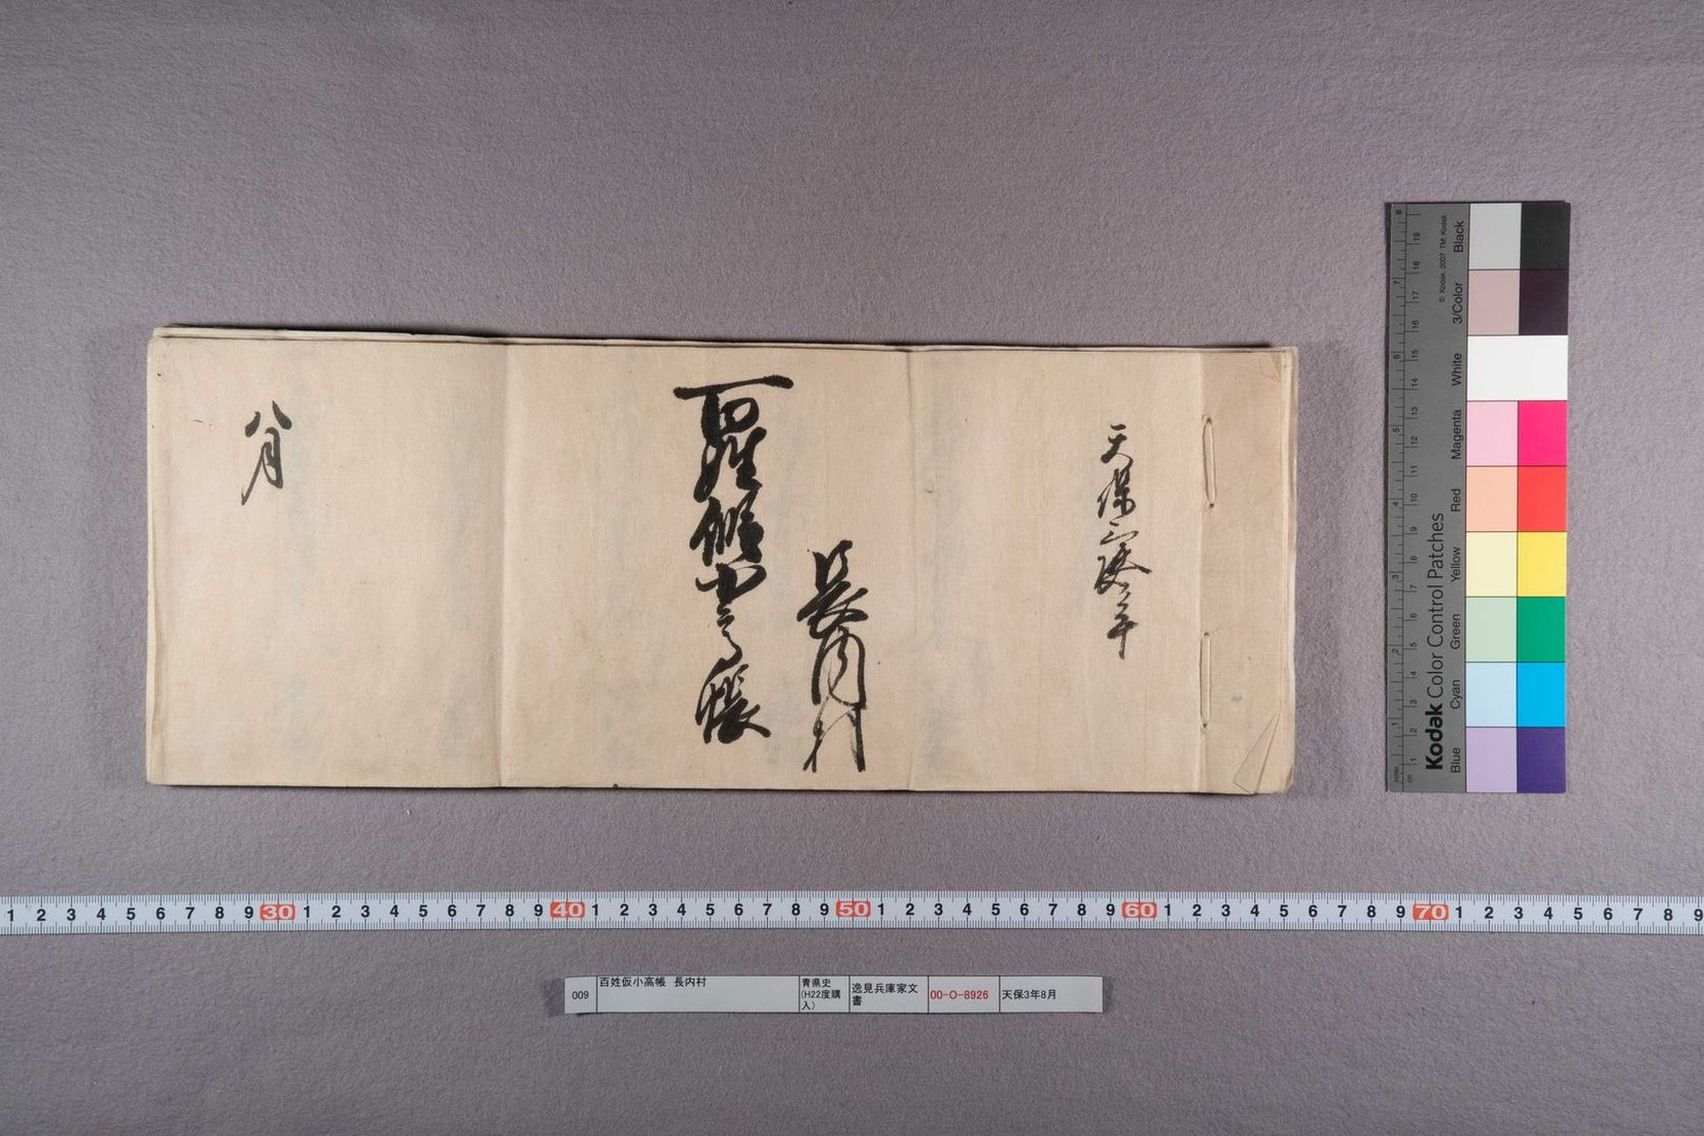 天保三辰年
長内村
百姓假小高帳
八月
Kodak Color Control Patches
© Kodak, 2007 TM: Kodak
Blue Cyan Green Yellow Red Magenta White 3/Color Black
1 2 3 4 5 6 7 8 9 30 1 2 3 4 5 6 7 8 9 40 1 2 3 4 5 6 7 8 9 50 1 2 3 4 5 6 7 8 9 60 1 2 3 4 5 6 7 8 9 70 1 2 3 4 5 6 7 8 9
009
百姓仮小高帳 長内村
青県史
(H22度購
入)
逸見兵庫家文
書
00-O-8926
天保3年8月